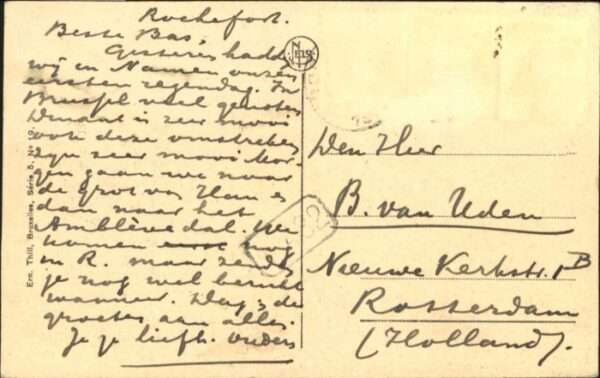 Rochefort.
Beste Bas,
Gisteren hadden
wij in Namen onzen
eersten regendag. In
Brussel veel genoten
Dinant is zeer mooi
ook deze omstreken
zijn zeer mooi Mor-
gen gaan we naar
de grot van Han en
dan naar het
Amblève dal. We
komen eerst nog
in R. maar zenden
je nog wel bericht
wanneer. Dag, de
groeten aan allen.
Je je liefh. Ouders
Ern. Thill, Bruxelles, Série 5, No 19.
NELS
Den Heer
B. van Uden
Nieuwe Kerkstr. 1B
Rotterdam
(Holland).